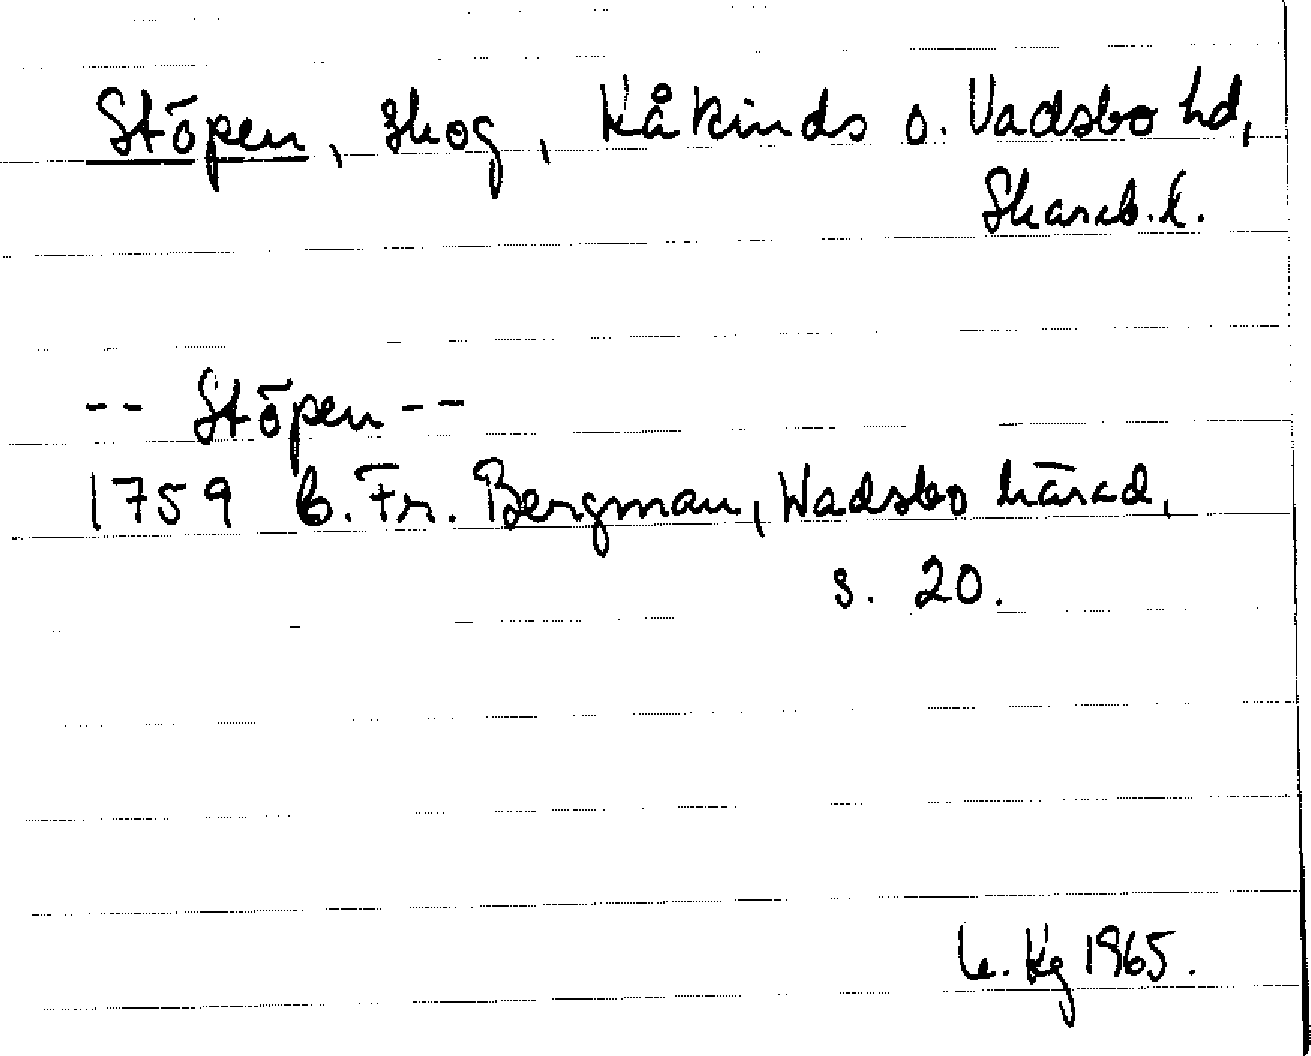 Stöpen, skog, Kåkinds o. Vadsbo hd,
Skarab. l.
-- Stöpen --
1759 B. Fr. Bergman, Wadsbo härad,
s. 20.
Kg 1965.